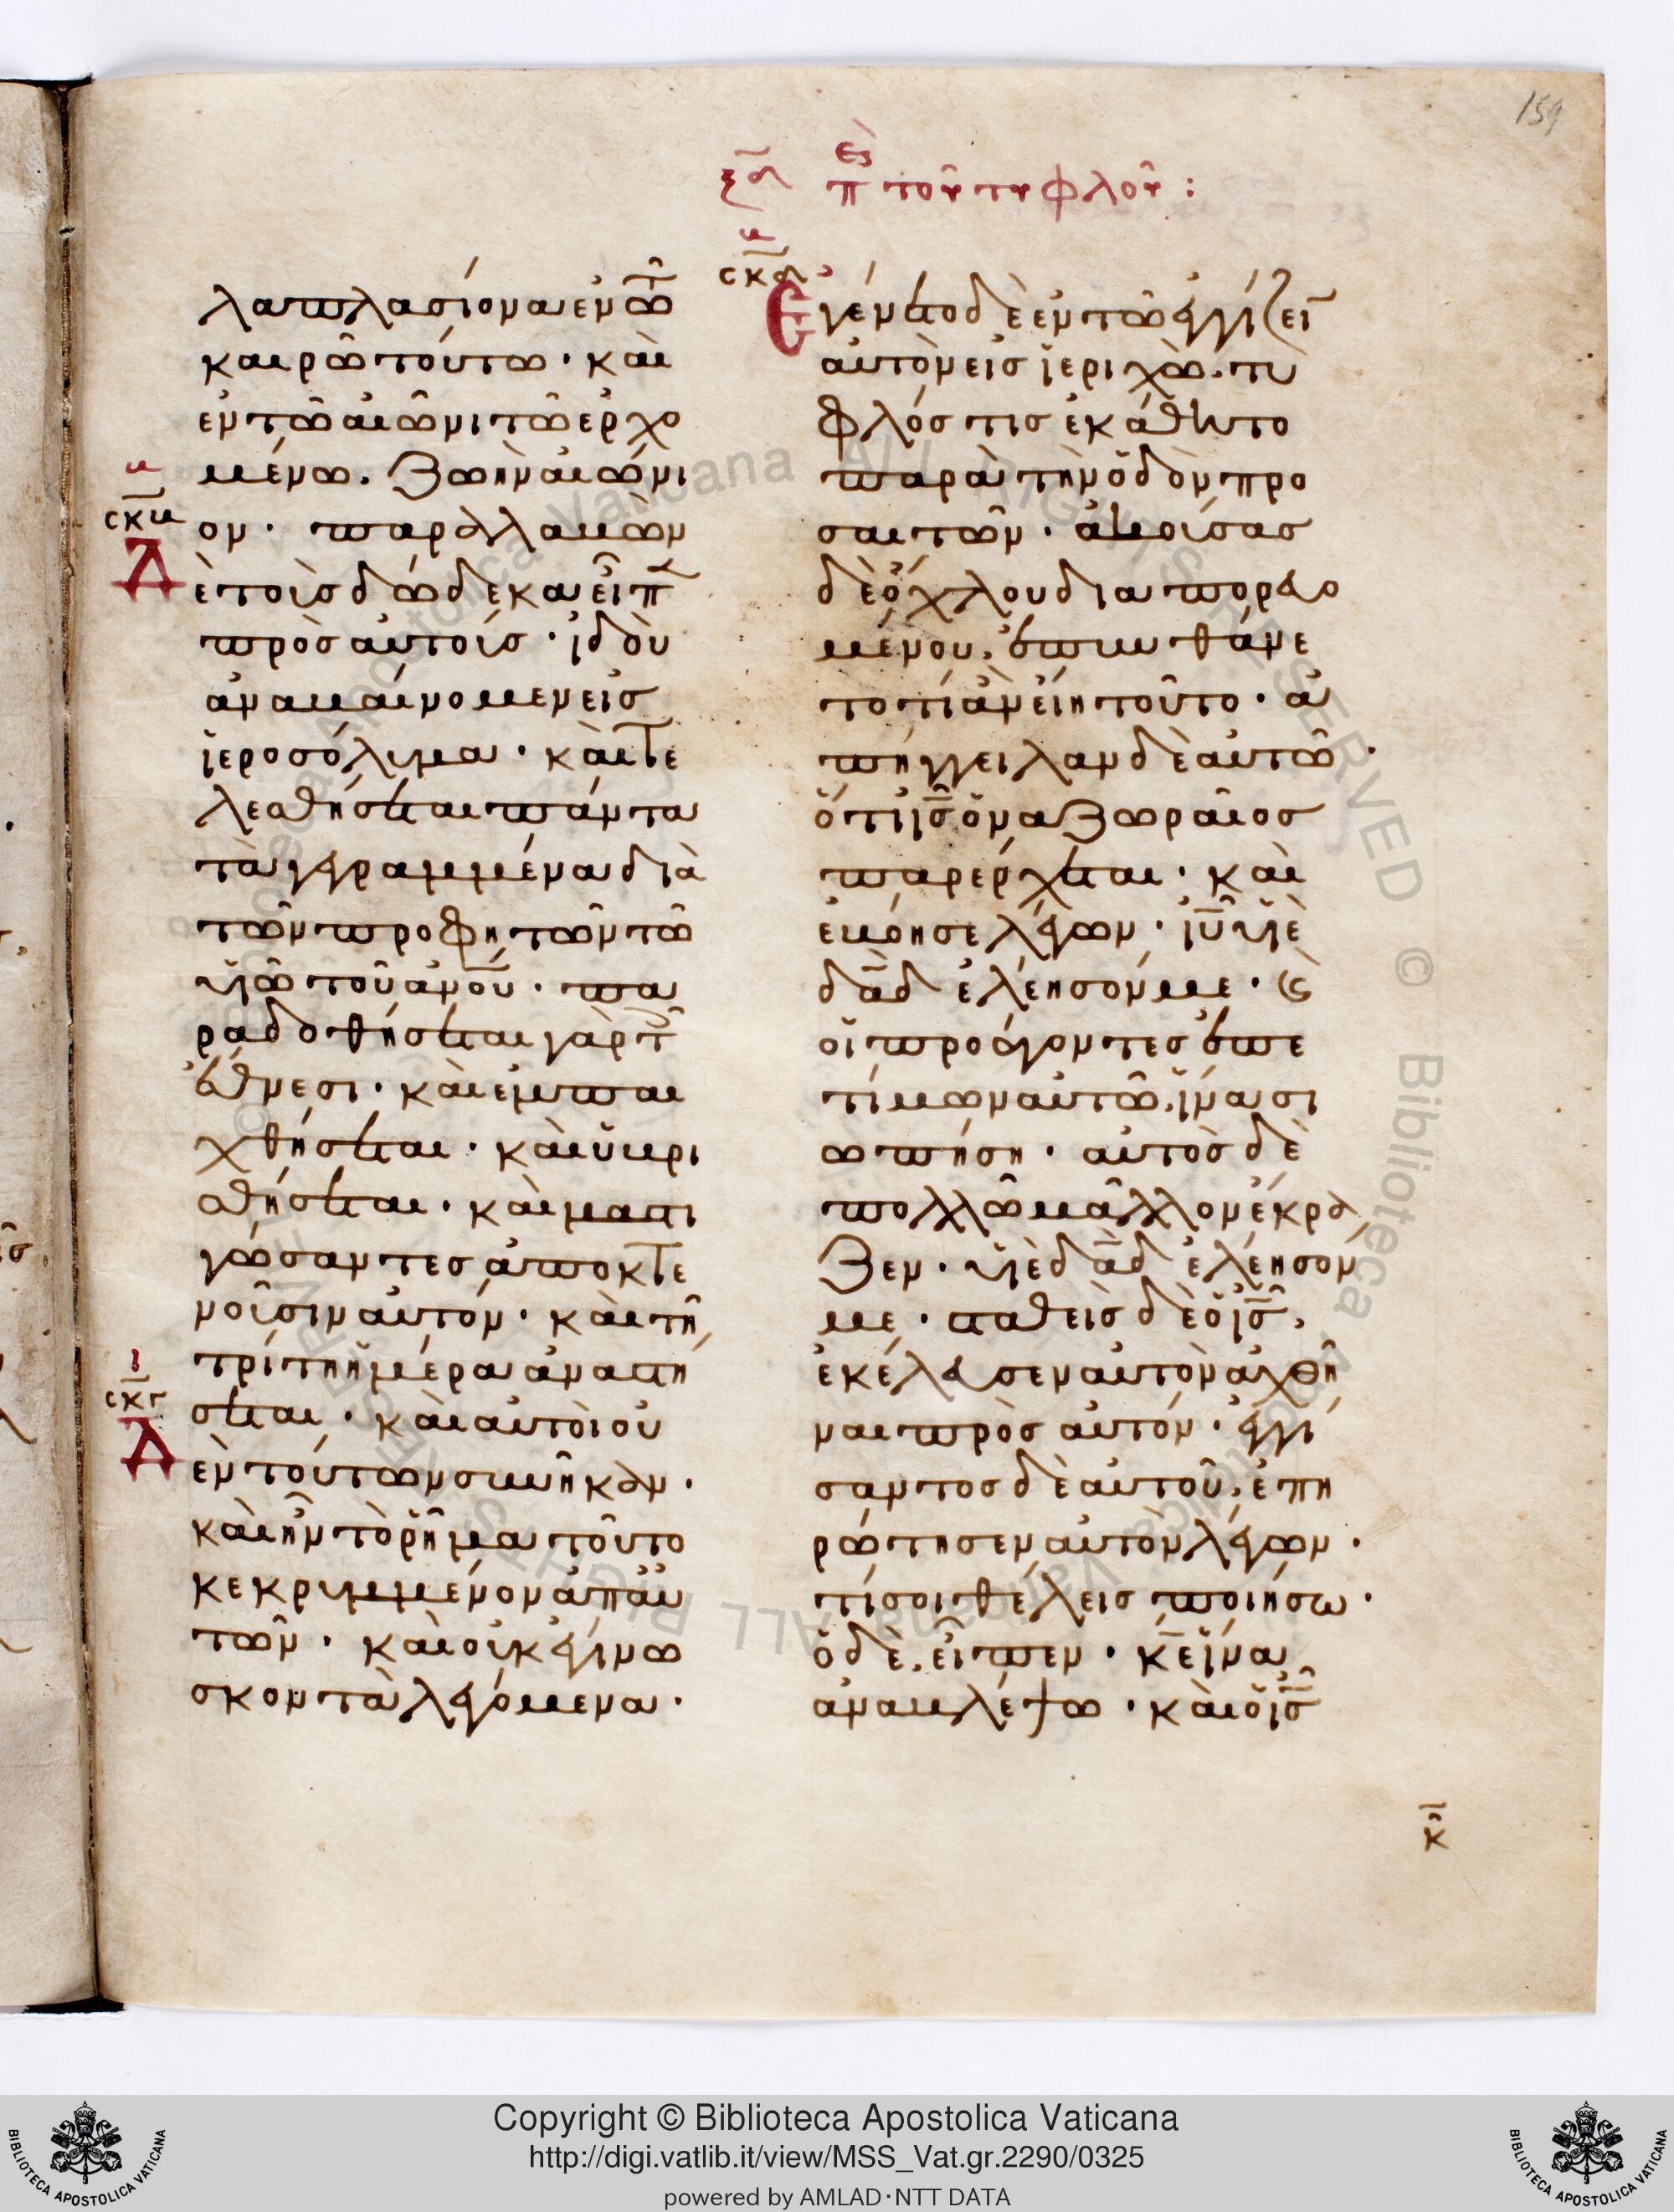 159
ξδ περὶ τοῦ τυφλοῦ :
λαπλασίονα ἐν τῶ
καιρῶ τούτω · καὶ
ἐν τῶ αἰῶνι τῶ ἐρχο
μένω. ζωὴν αἰώνι
σκβ
β
ον · παραλαβὼν
Δὲ τοὺς δώδεκα εἶπ
πρὸς αὐτούς · ἰδοὺ
ἀναβαίνομεν εἰς
ἱεροσόλυμα · καὶ τε
λεσθήσεται πάντα
τὰ γεγραμμένα διὰ
τῶν προφητῶν τῶ
υἱῶ τοῦ ἀνου · πα
ραδοθήσεται γὰρ τ
ἔθνεσι · καὶ ἐμπαι
χθήσεται · καὶ ὑβρι
σθήσεται · καὶ μαστι
γώσαντες ἀποκτε
νοῦσιν αὐτόν · καὶ τῆ
τρίτη ἡμέρα ἀναστή
ι
σκγ
σεται · καὶ αὐτοὶ οὐ
Δὲν τούτων συνῆκαν ·
καὶ ἦν τὸ ῥῆμα τοῦτο
κεκρυμμένον ἀπ' αὐ
τῶν · καὶ οὐκ ἐγίνω
σκον τὰ λεγόμενα ·
β
σκδ
Ἐγένετο δὲ ἐν τῶ ἐγγίζει
αὐτὸν εἰς ἰεριχὼ. τυ
φλός τις ἐκάθητο
παρὰ τὴν ὁδὸν προ
σαιτῶν · ἀκούσας
δὲ ὄχλου διαπορευο
μένου, ἐπυνθάνε
το τί ἂν εἴη τοῦτο · ἀ
πήγγειλαν δὲ αὐτῶ ·
ὅτι ις ὁ ναζωραῖος
παρέρχεται · καὶ
ἐβόησε λέγων · ιυ υἱὲ
δαδ ἐλέησόν με · ϗ
οἱ προάγοντες ἐπε
τίμων αὐτῶ, ἵνα σι
ωπήση · αὐτὸς δὲ
πολλῶ μᾶλλον ἔκρα
ζεν · υἱὲ δαδ ἐλέησον
με · σταθεὶς δὲ ὁ ις,
ἐκέλευσεν αὐτὸν ἀχθῆ
ναι πρὸς αὐτόν · ἐγγί
σαντος δὲ αὐτοῦ, ἐπη
ρώτησεν αὐτὸν λέγων ·
τί σοι θέλεις ποιήσω ·
ὁ δὲ, εἶπεν · κε ἵνα
ἀναβλέψω · καὶ ὁ ις
κ
Copyright © Biblioteca Apostolica Vaticana
http://digi.vatlib.it/view/MSS_Vat.gr.2290/0325
powered by AMLAD·NTT DATA